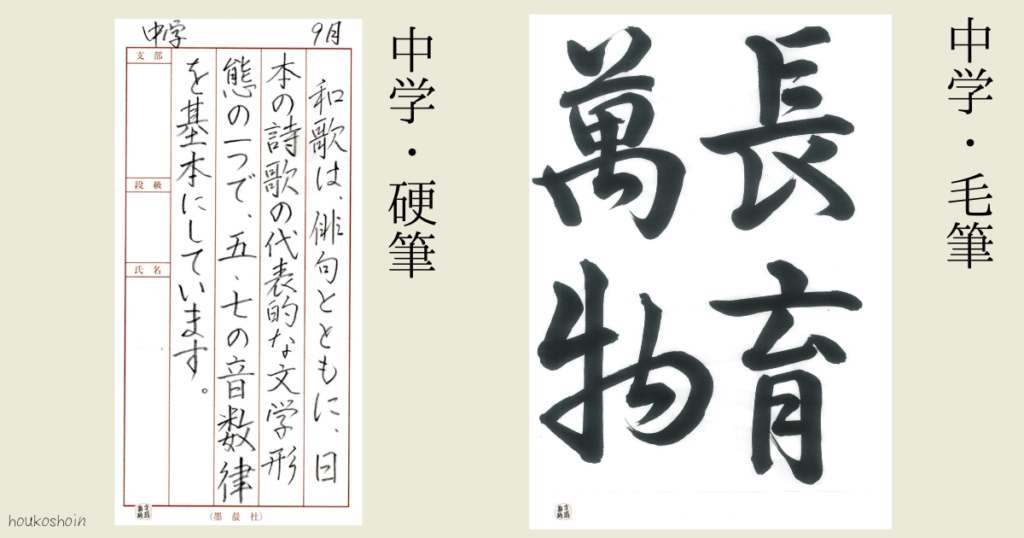 中学・毛筆
長育
萬物
中学・硬筆
9月
中学
和歌は、俳句とともに、日
本の詩歌の代表的な文学形
態の一つで、五・七の音数律
を基本にしています。
支部
段級
氏名
houkoshoin